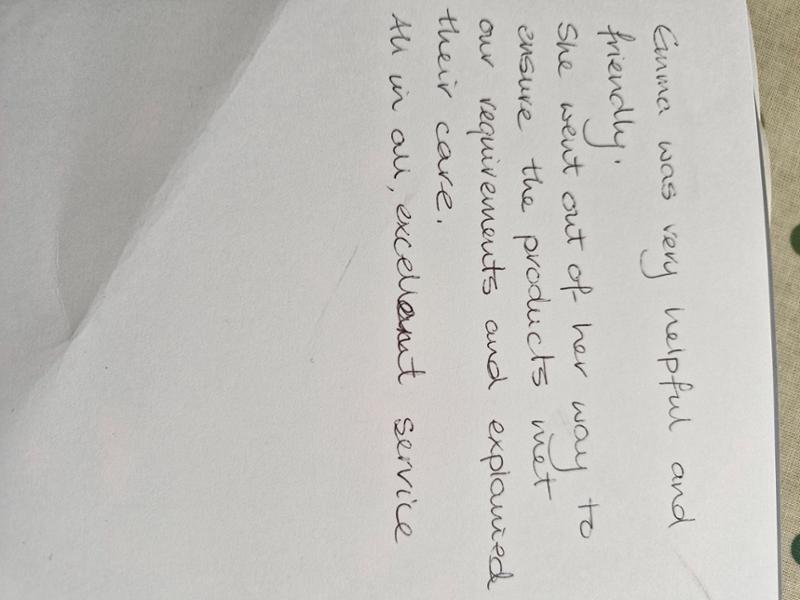 Emma was very helpful and
friendly.
She went out of her way to
ensure the products met
our requirements and explained
their care.
All in all, excellent service